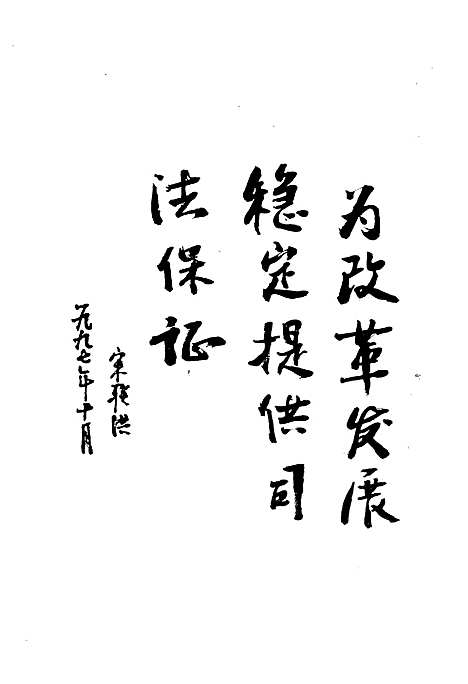 为改革发展
稳定提供司
法保证
宋 洪
一九九七年十月